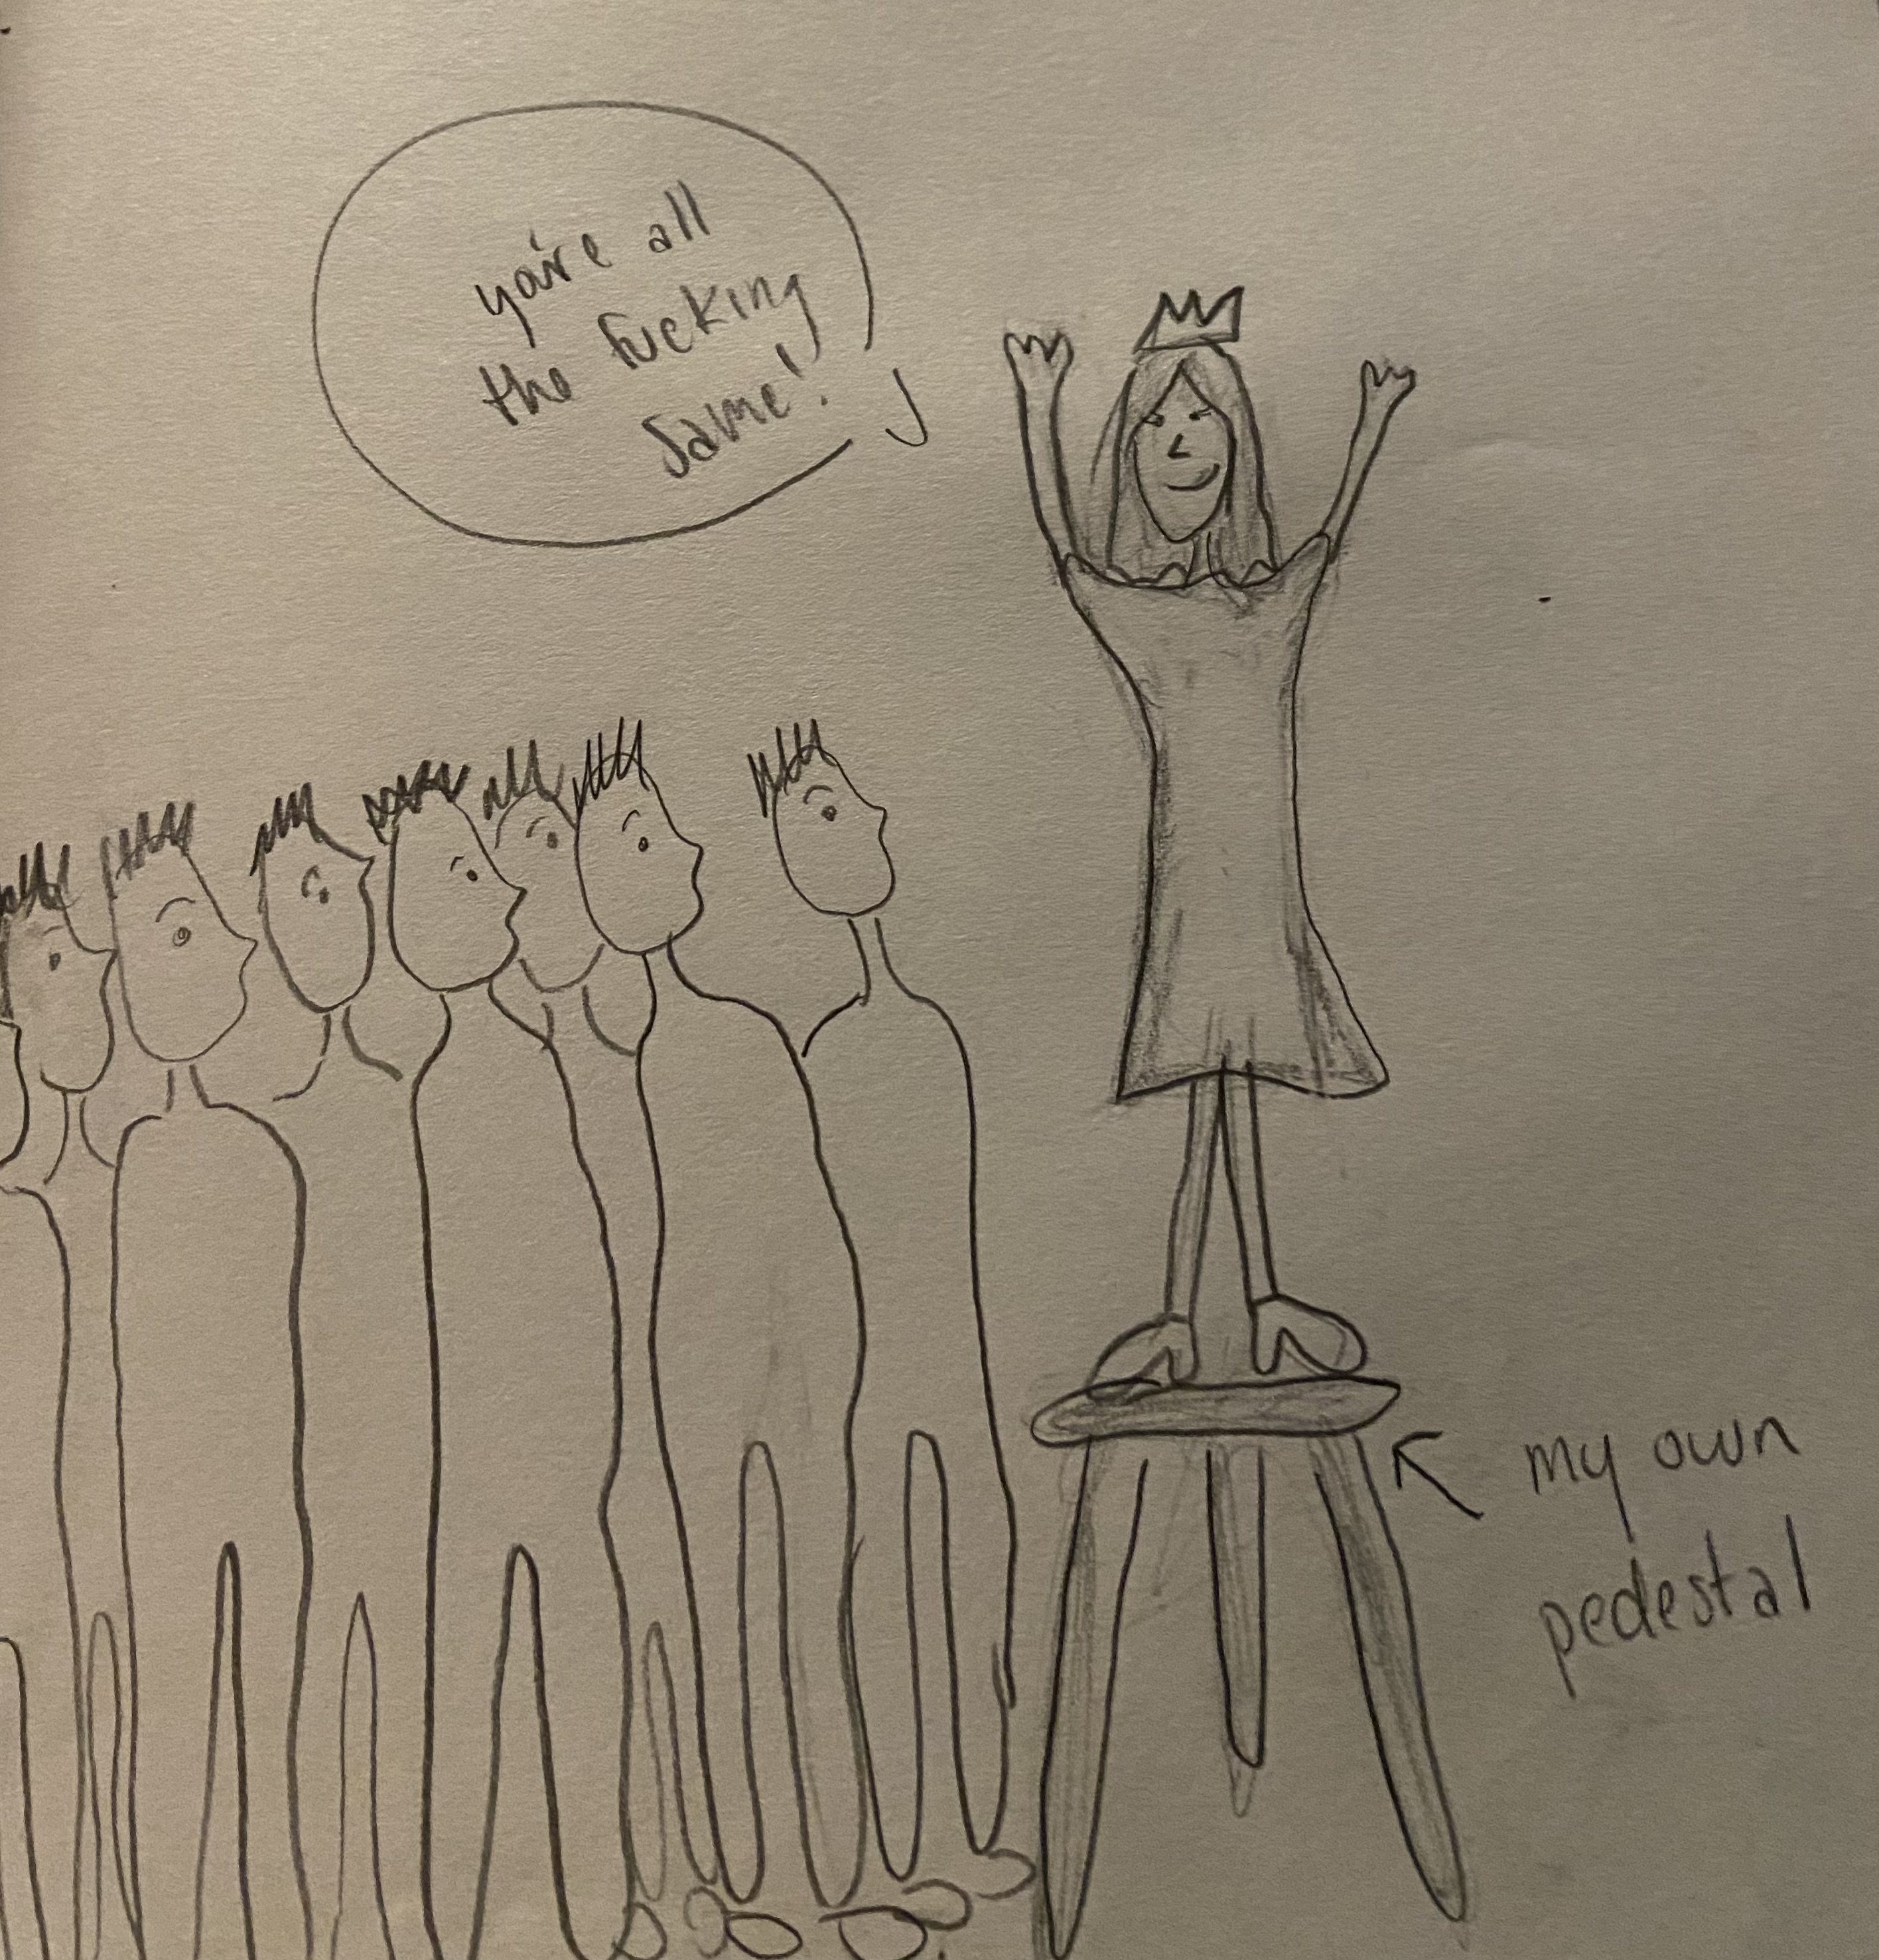 you're all
the fucking
same!
my own
pedestal